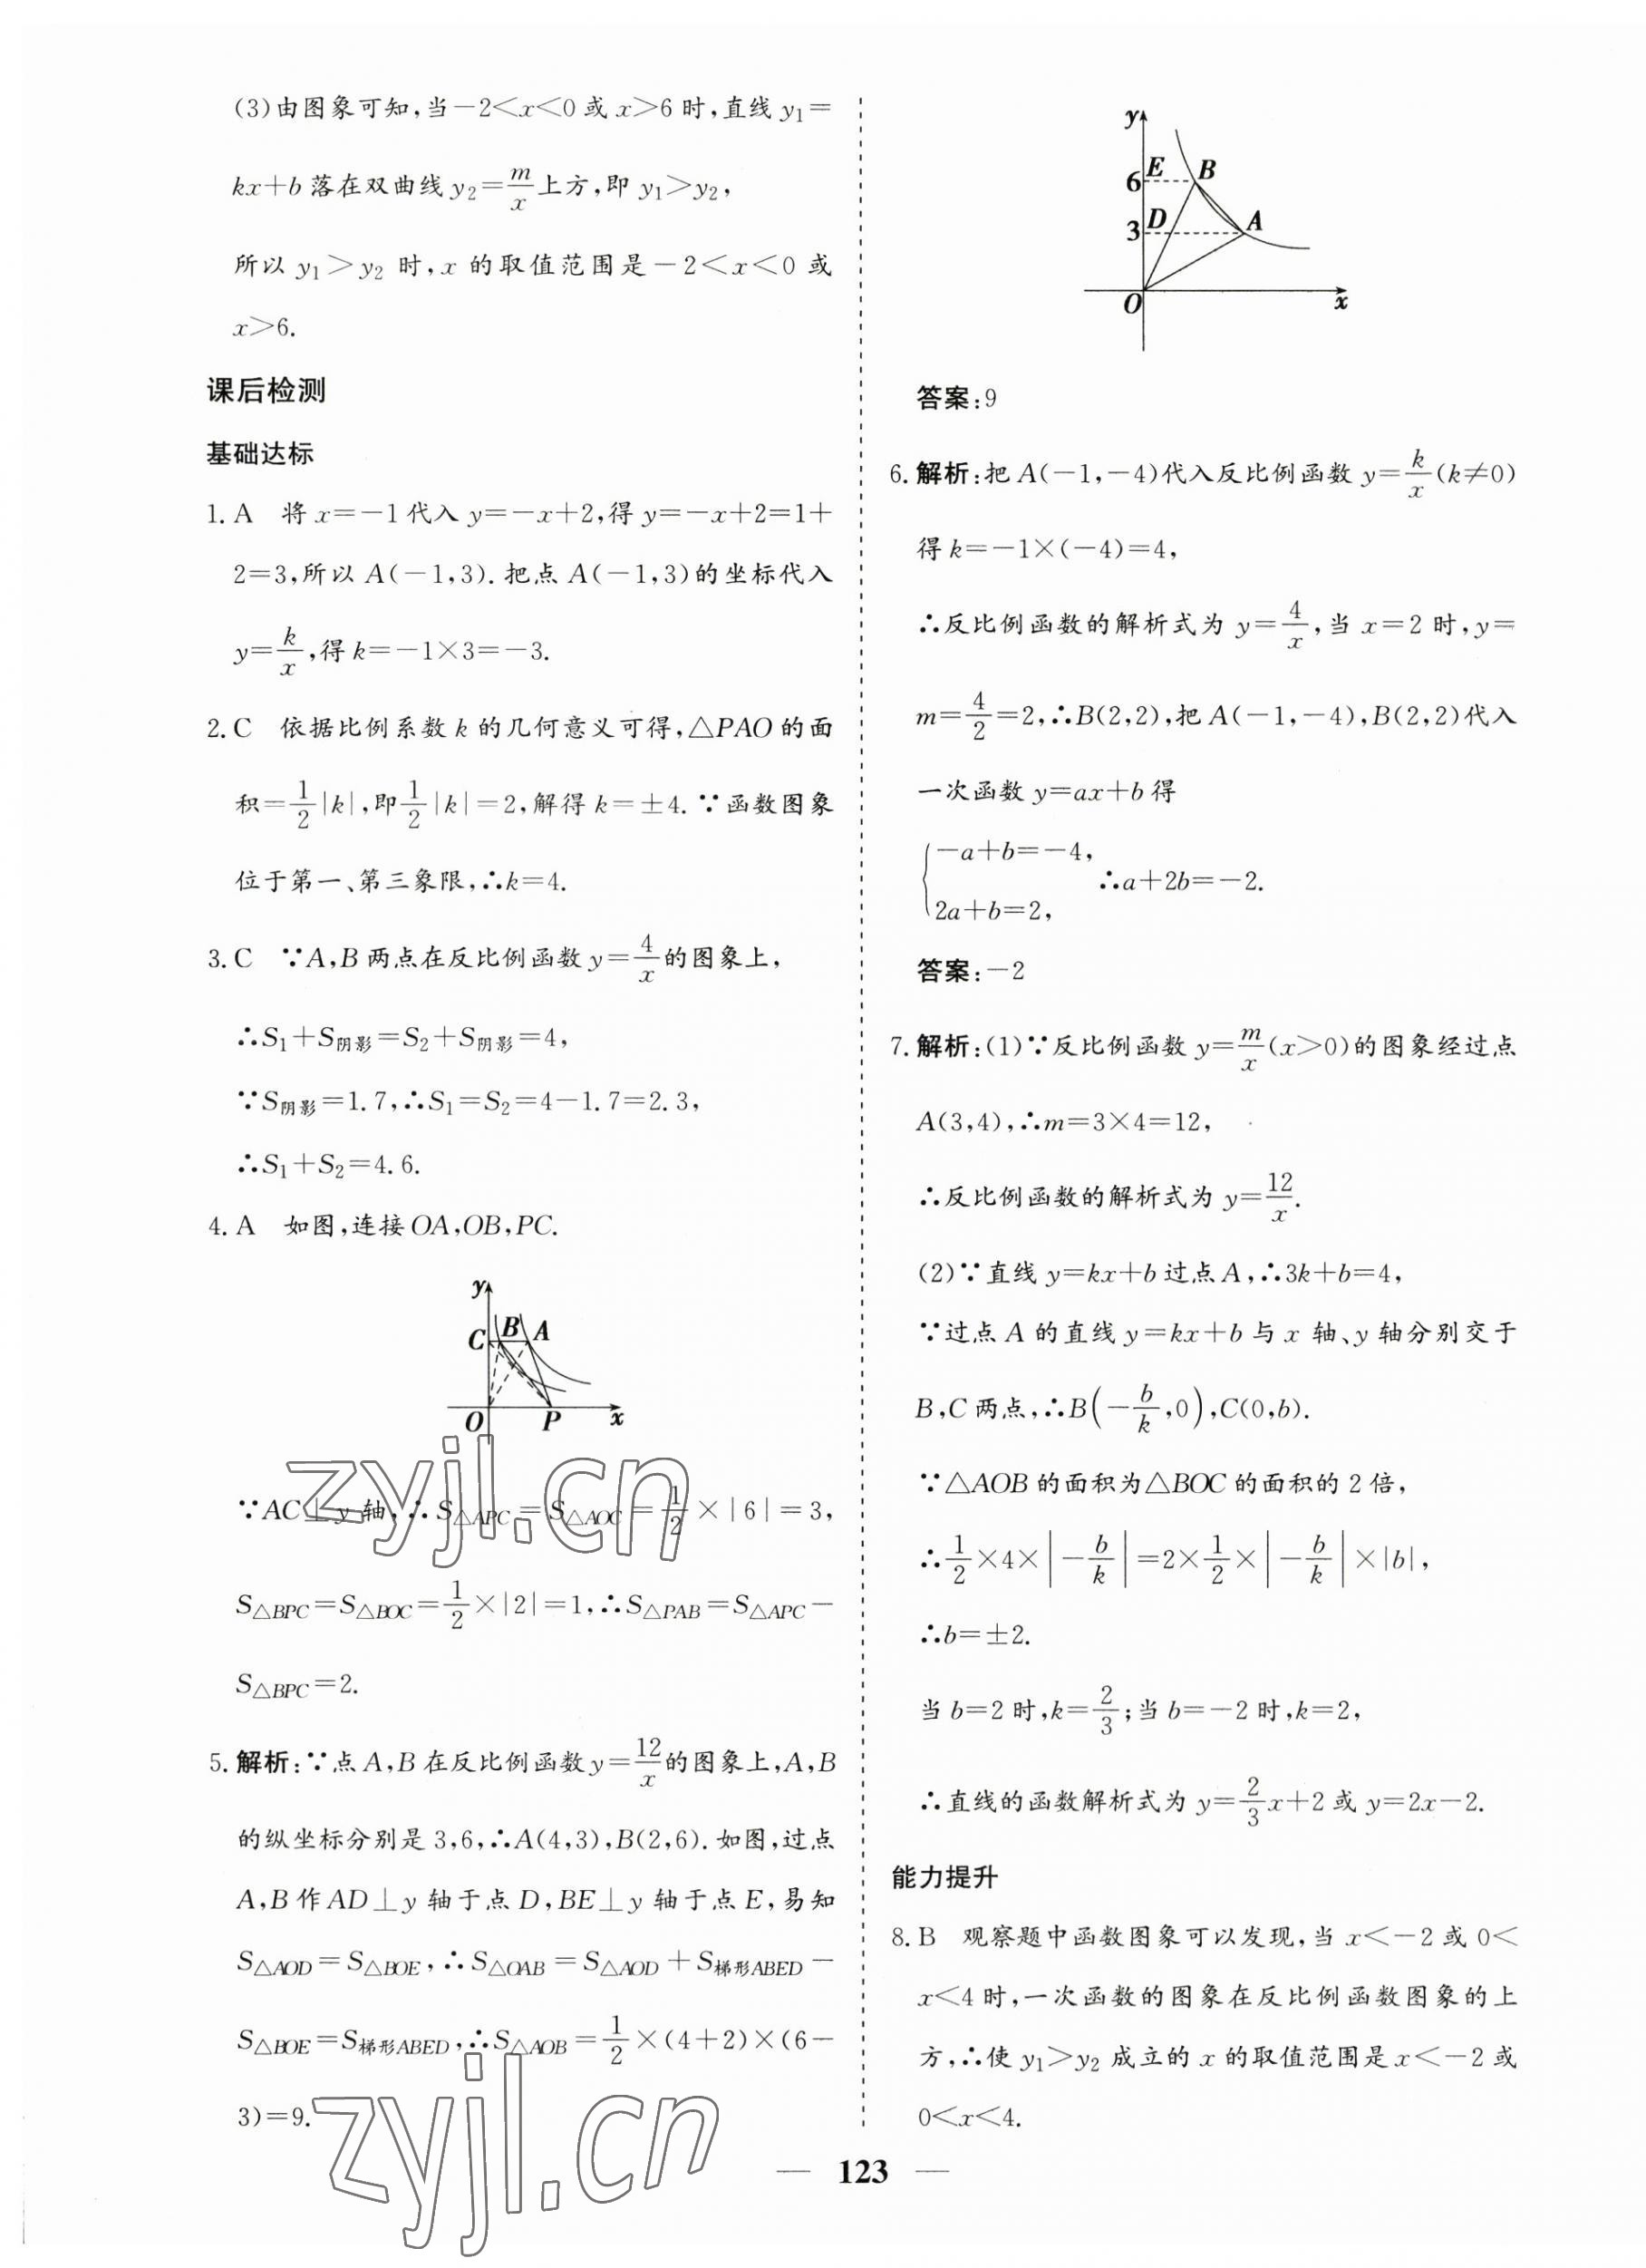 (3)由图象可知,当－2<x<0或x>6时,直线y₁=
kx+b落在双曲线y₂=m/x上方,即y₁>y₂,
所以y₁>y₂时,x的取值范围是－2<x<0或
x>6.
课后检测
基础达标
1. A　将x=－1代入y=－x+2,得y=－x+2=1+
2=3,所以A(－1,3).把点A(－1,3)的坐标代入
y=k/x,得k=－1×3=－3.
2. C　依据比例系数k的几何意义可得,△PAO的面
积=1/2|k|,即1/2|k|=2,解得k=±4.∵函数图象
位于第一、第三象限,∴k=4.
3. C　∵A,B两点在反比例函数y=4/x的图象上,
∴S₁+S阴影=S₂+S阴影=4,
∵S阴影=1.7,∴S₁=S₂=4－1.7=2.3,
∴S₁+S₂=4.6.
4. A　如图,连接OA,OB,PC.
y
C B A
O P x
∵AC⊥y轴,∴S△APC=S△AOC=1/2×|6|=3,
S△BPC=S△BOC=1/2×|2|=1,∴S△PAB=S△APC－
S△BPC=2.
5. 解析:∵点A,B在反比例函数y=12/x的图象上,A,B
的纵坐标分别是3,6,∴A(4,3),B(2,6).如图,过点
A,B作AD⊥y轴于点D,BE⊥y轴于点E,易知
S△AOD=S△BOE,∴S△OAB=S△AOD+S梯形ABED－
S△BOE=S梯形ABED,∴S△AOB=1/2×(4+2)×(6－
3)=9.
y
6 E B
3 D A
O x
答案:9
6. 解析:把A(－1,－4)代入反比例函数y=k/x(k≠0)
得k=－1×(－4)=4,
∴反比例函数的解析式为y=4/x,当x=2时,y=
m=4/2=2,∴B(2,2),把A(－1,－4),B(2,2)代入
一次函数y=ax+b得
{－a+b=－4,
2a+b=2, ∴a+2b=－2.
答案:－2
7. 解析:(1)∵反比例函数y=m/x(x>0)的图象经过点
A(3,4),∴m=3×4=12,
∴反比例函数的解析式为y=12/x.
(2)∵直线y=kx+b过点A,∴3k+b=4,
∵过点A的直线y=kx+b与x轴、y轴分别交于
B,C两点,∴B(－b/k,0),C(0,b).
∵△AOB的面积为△BOC的面积的2倍,
∴1/2×4×|－b/k|=2×1/2×|－b/k|×|b|,
∴b=±2.
当b=2时,k=2/3;当b=－2时,k=2,
∴直线的函数解析式为y=2/3x+2或y=2x－2.
能力提升
8. B　观察题中函数图象可以发现,当x<－2或0<
x<4时,一次函数的图象在反比例函数图象的上
方,∴使y₁>y₂成立的x的取值范围是x<－2或
0<x<4.
— 123 —
zyjl.cn
zyjl.cn